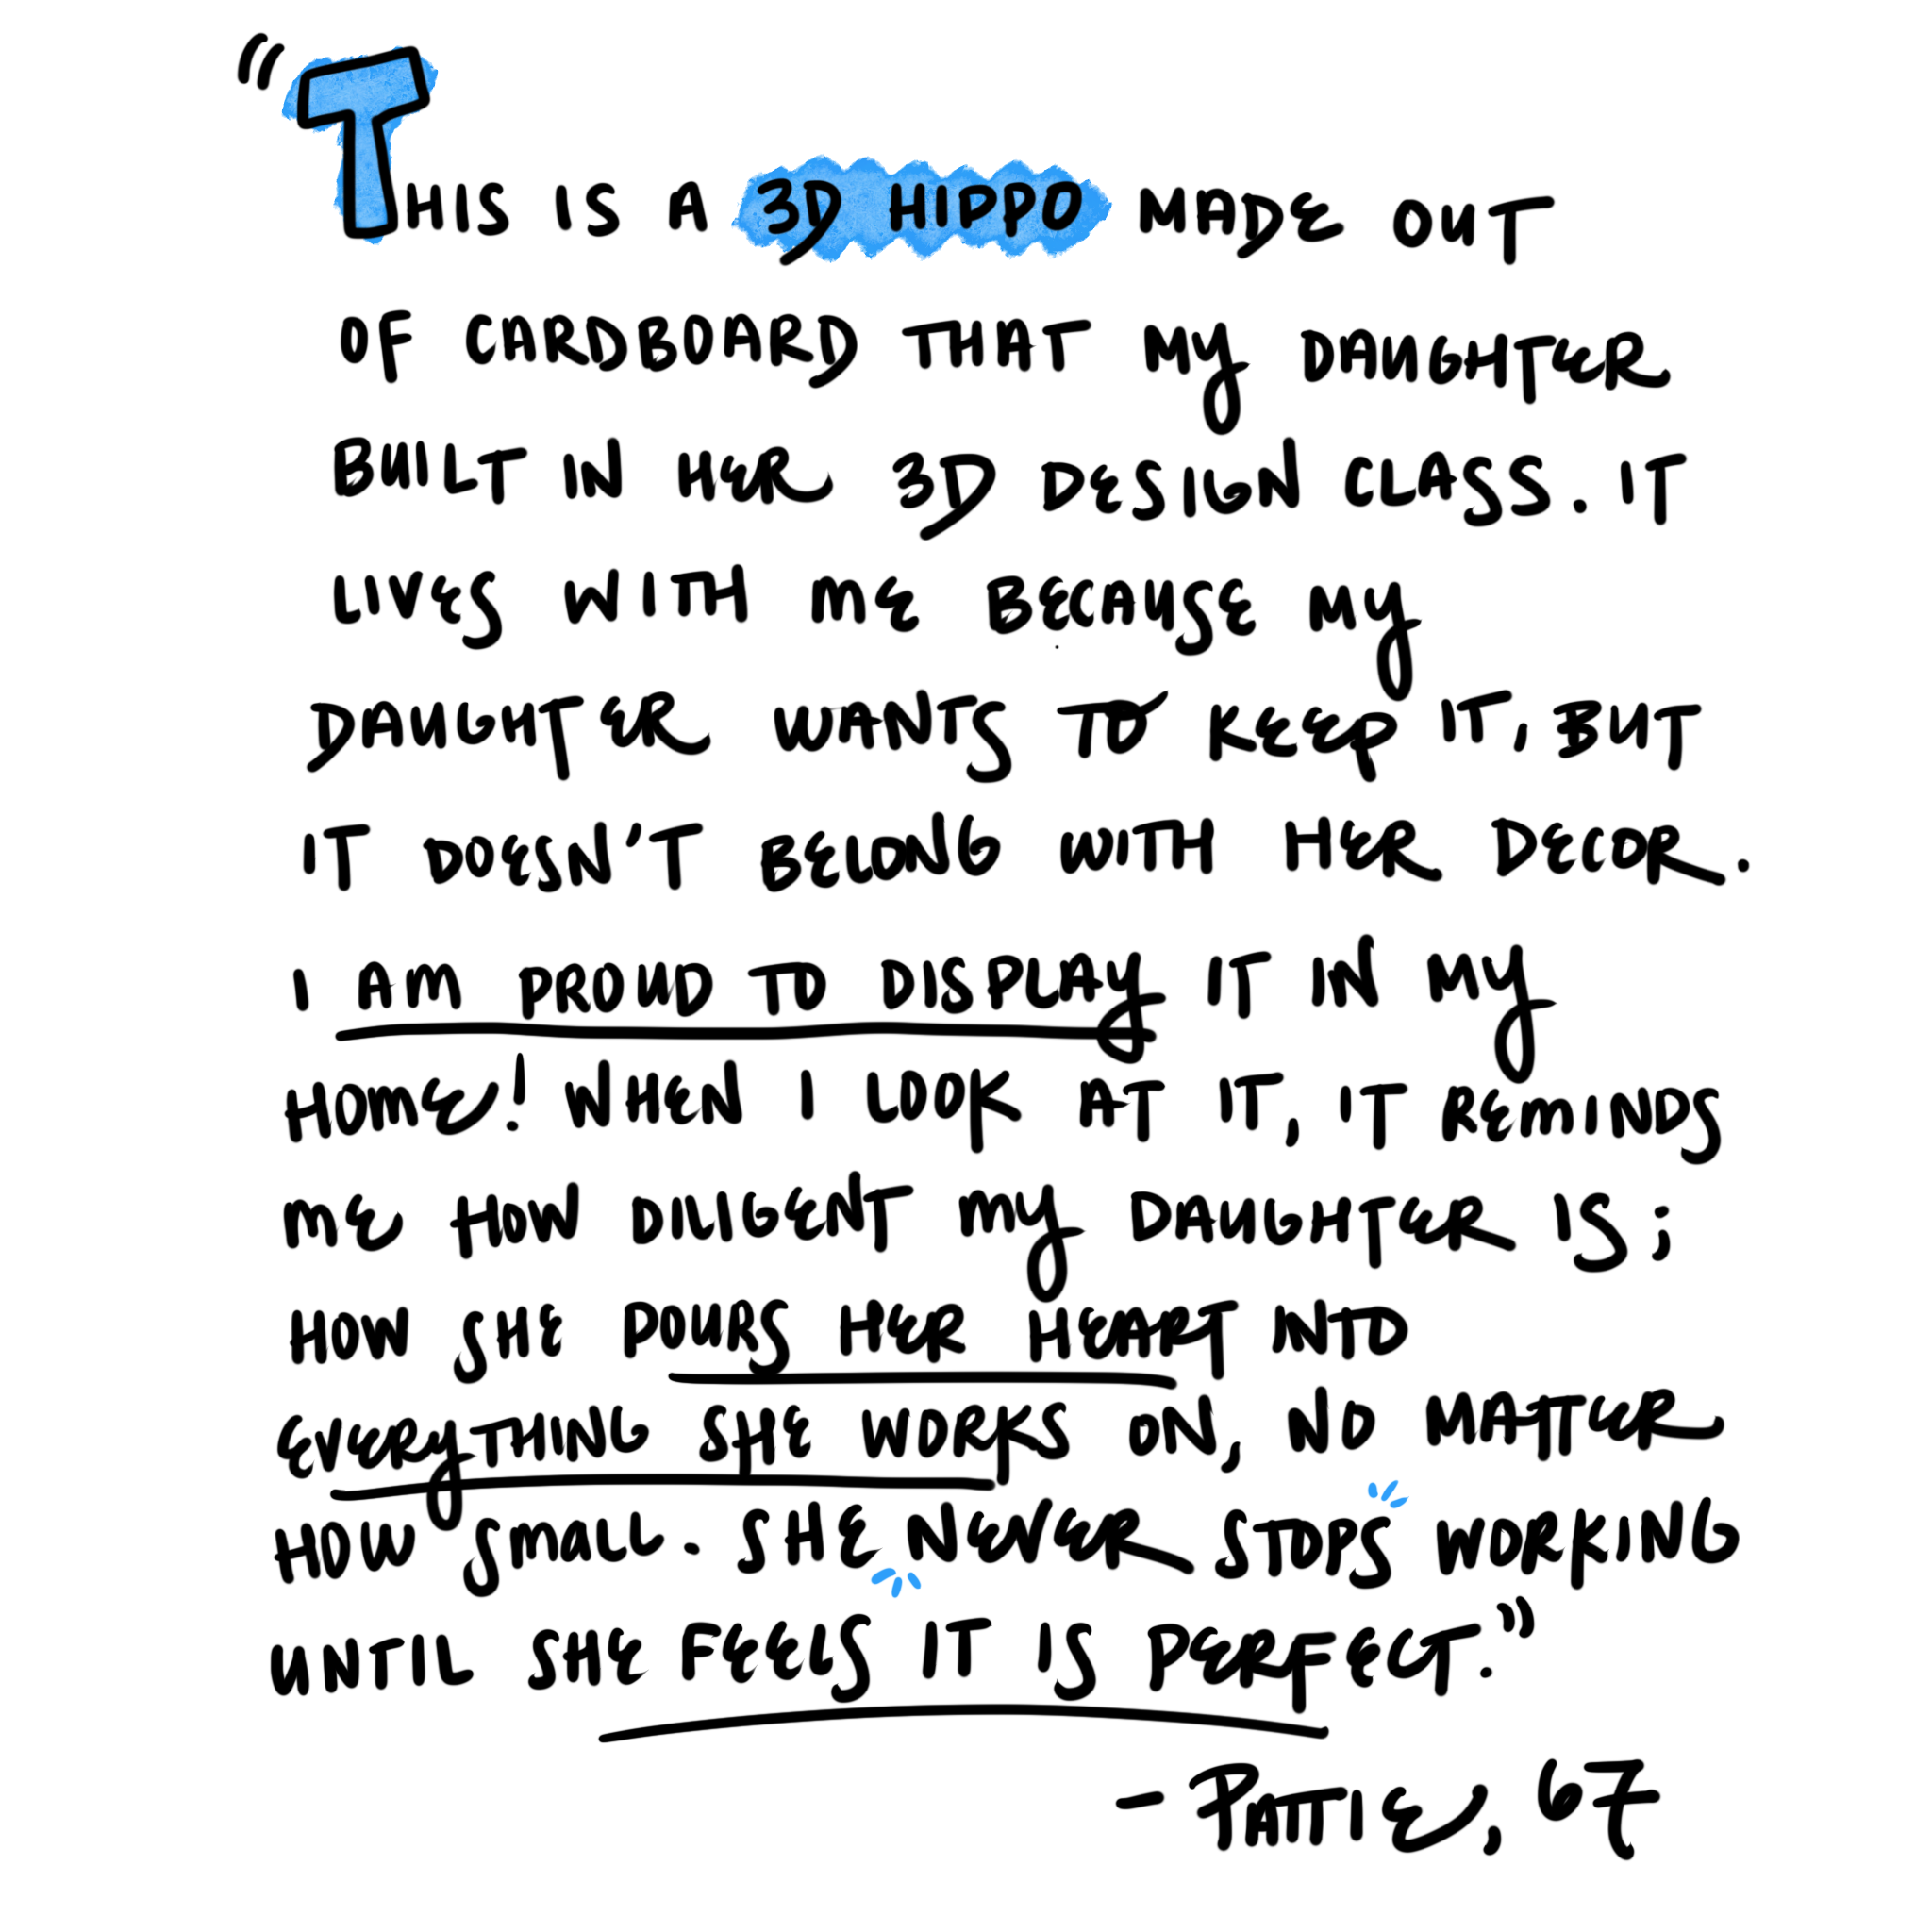 "THIS IS A 3D HIPPO MADE OUT
OF CARDBOARD THAT MY DAUGHTER
BUILT IN HER 3D DESIGN CLASS. IT
LIVES WITH ME BECAUSE MY
DAUGHTER WANTS TO KEEP IT, BUT
IT DOESN'T BELONG WITH HER DECOR.
I AM PROUD TO DISPLAY IT IN MY
HOME! WHEN I LOOK AT IT, IT REMINDS
ME HOW DILIGENT MY DAUGHTER IS;
HOW SHE POURS HER HEART INTO
EVERYTHING SHE WORKS ON, NO MATTER
HOW SMALL. SHE NEVER STOPS WORKING
UNTIL SHE FEELS IT IS PERFECT."
- PATTIE, 67